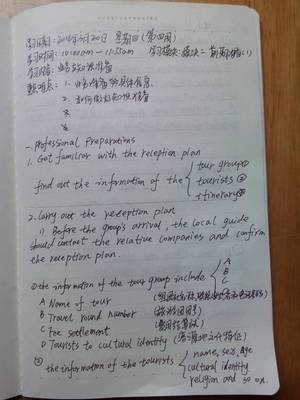 学习时间: 10:00am — 11:35am
学习内容: 业务知识准备
重难点: 1. 业务准备的具体信息
2. 如何做好知识准备
一. Professional Preparations
1. Get familiar with the reception plan
find out the information of the { tour group ①
tourists ②
itinerary ③
2. Carry out the reception plan
1) Before the group's arrival, the local guide
should contact the relative companies and confirm
the reception plan.
① the information of the tour group include { A
B
C
A Name of tour
B Travel round number (旅游团团号)
C Fee settlement (费用结算)
D Tourists to cultural identity
② the information of the tourists { name, sex, Age
cultural identity
religion and so on.